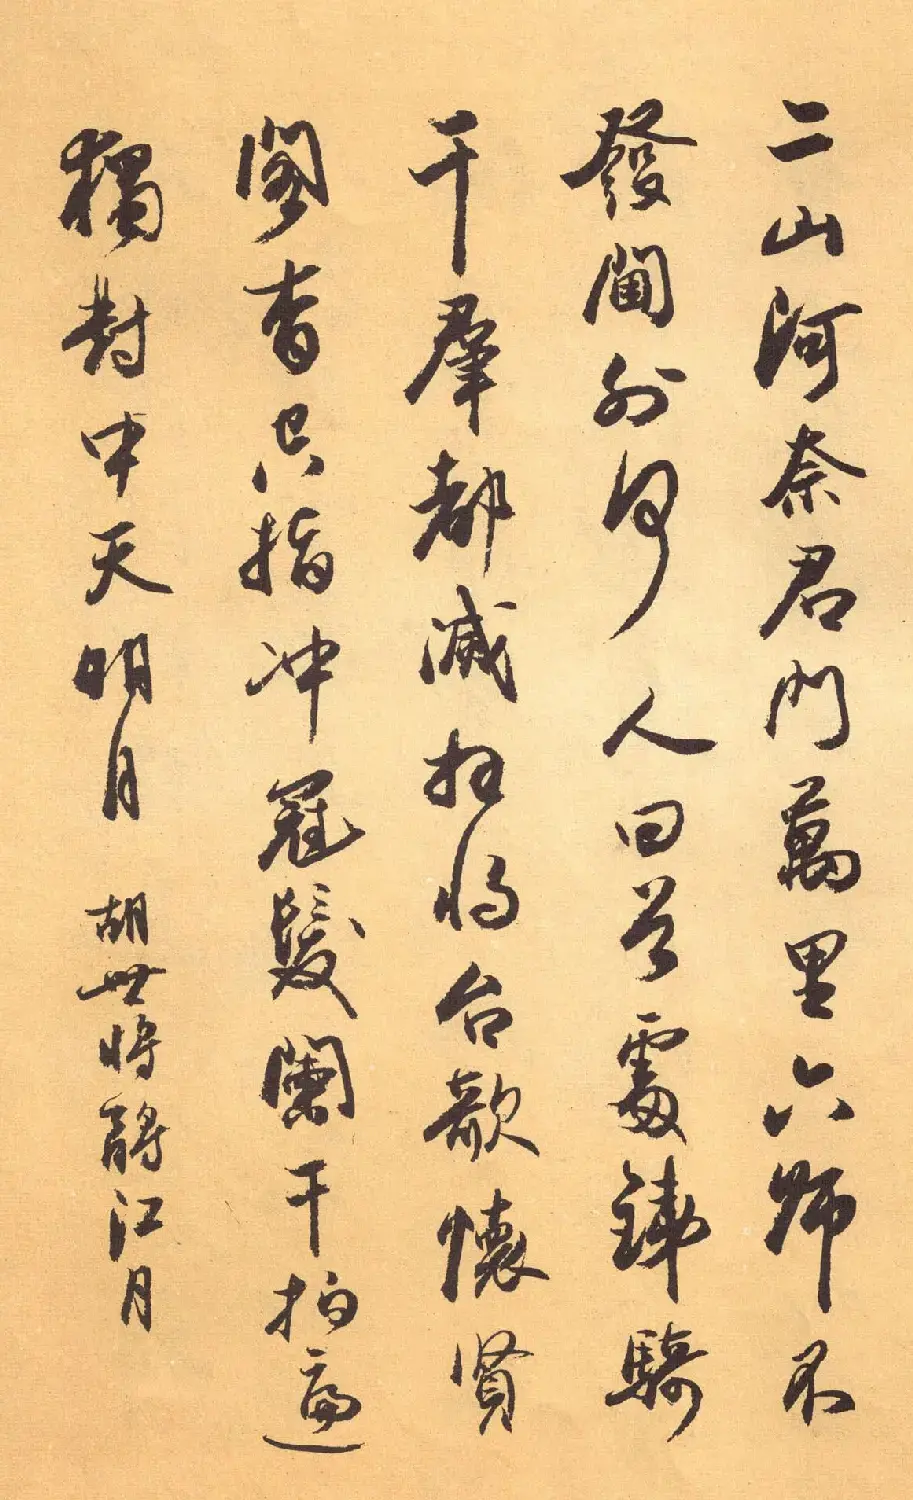 二山河奈君門萬里六師不
發閫外何人回首處鐵騎
千羣都滅拜將台欹懷賢
閣杳只指冲冠髮闌干拍遍
獨對中天明月 胡世將酹江月